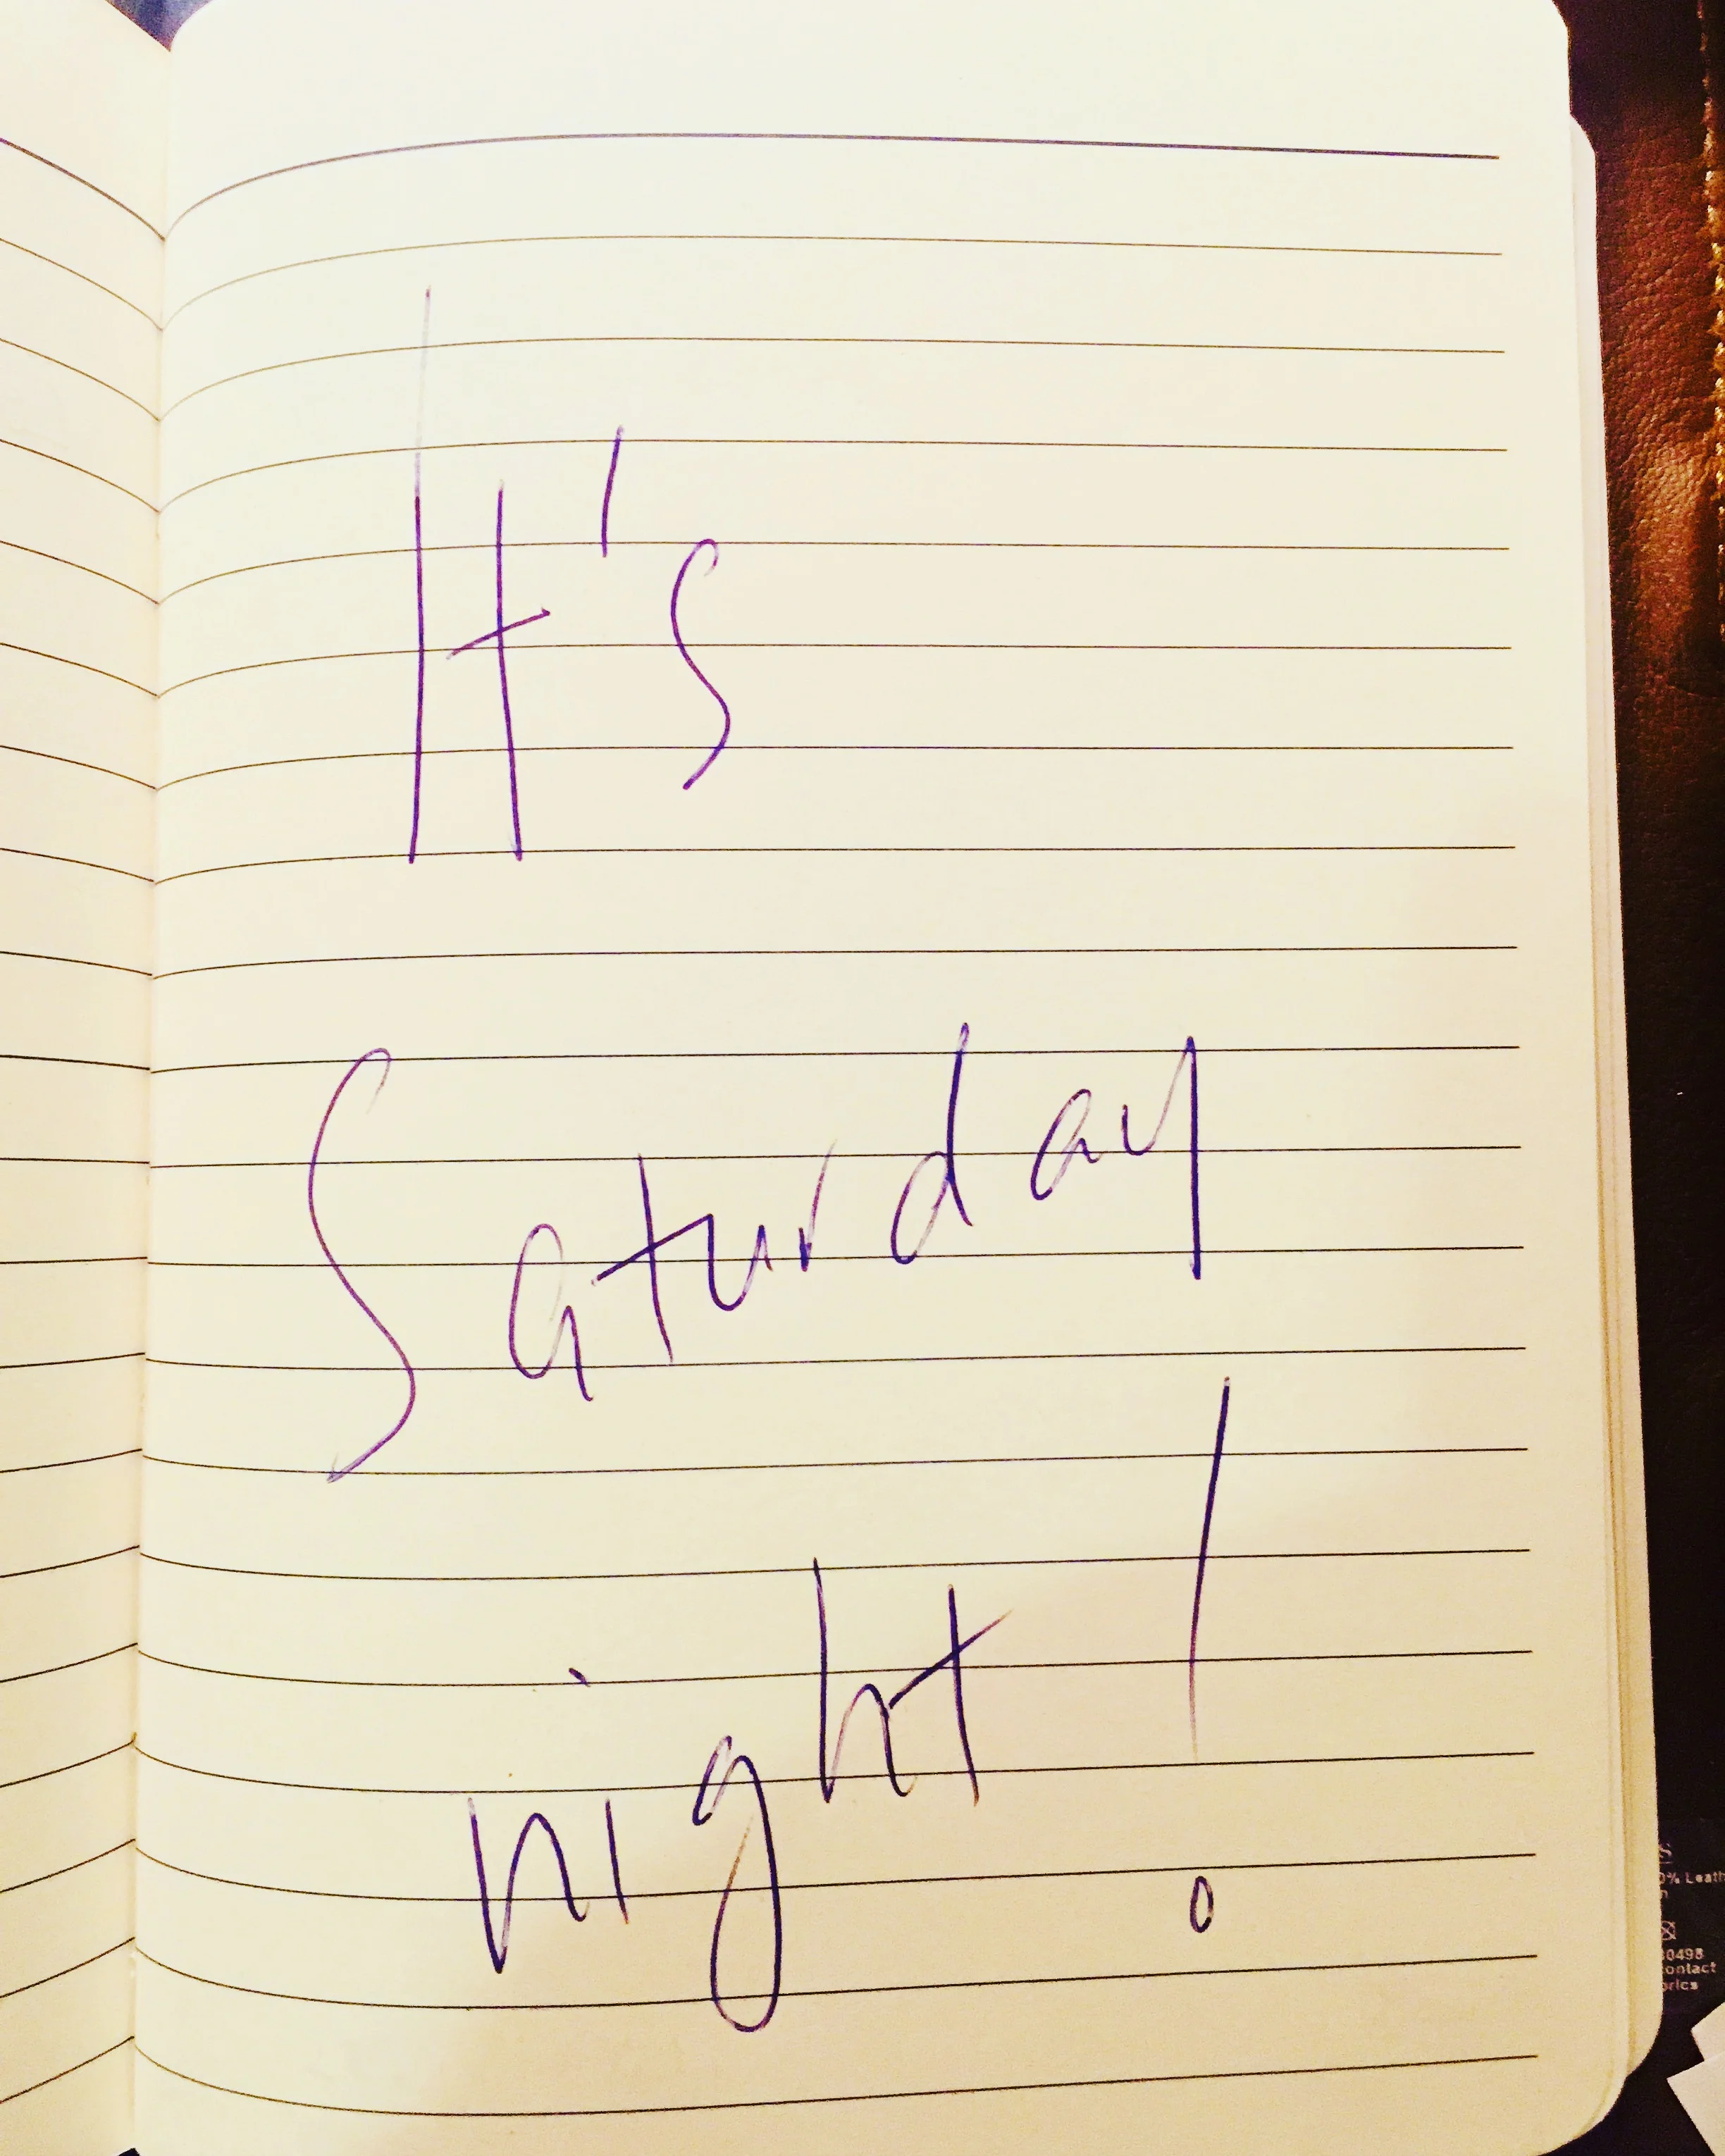 It's
Saturday
night!
S
0% Leath
n
0498
ontact
brics